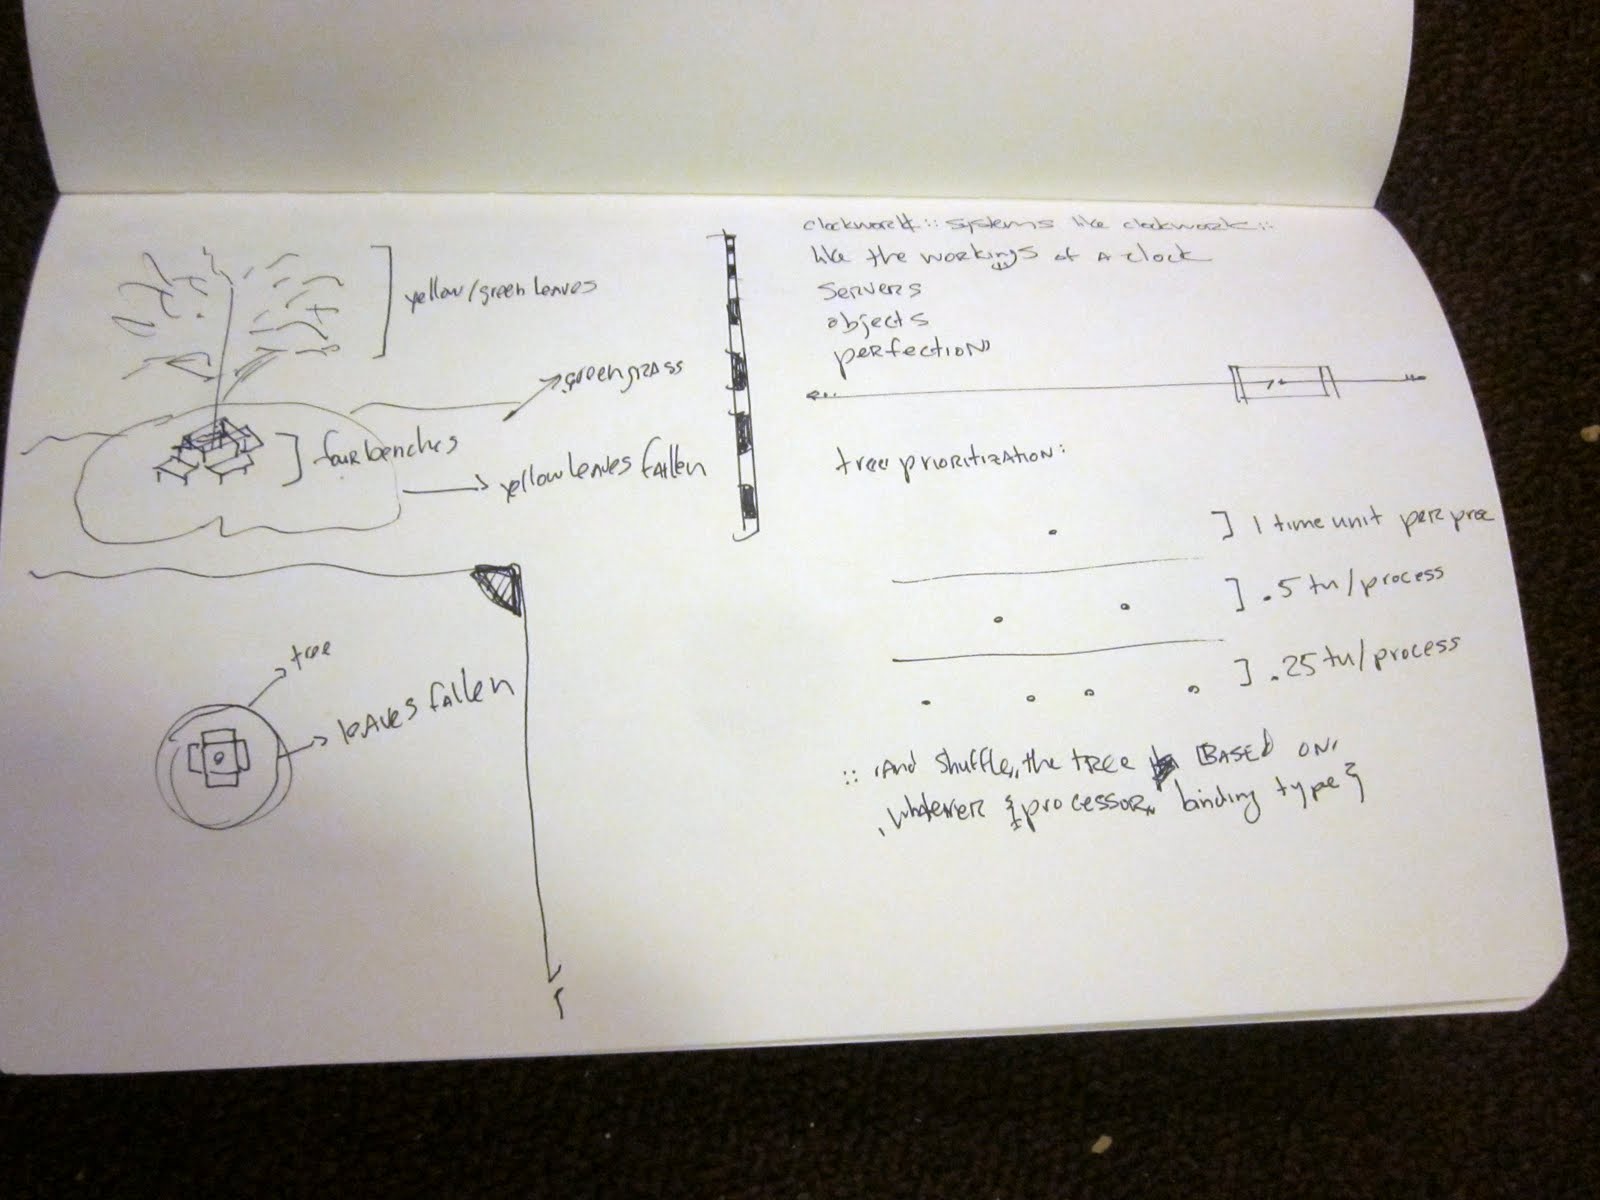 yellow/green leaves
green grass
four benches
yellow leaves fallen
tree
leaves fallen
clockwork :: systems like clockwork ::
like the workings of a clock
servers
objects
perfection
tree prioritization:
1 time unit per proc
.5 tu/process
.25 tu/process
:: And shuffle the tree BASED ON
whatever {processor binding type}